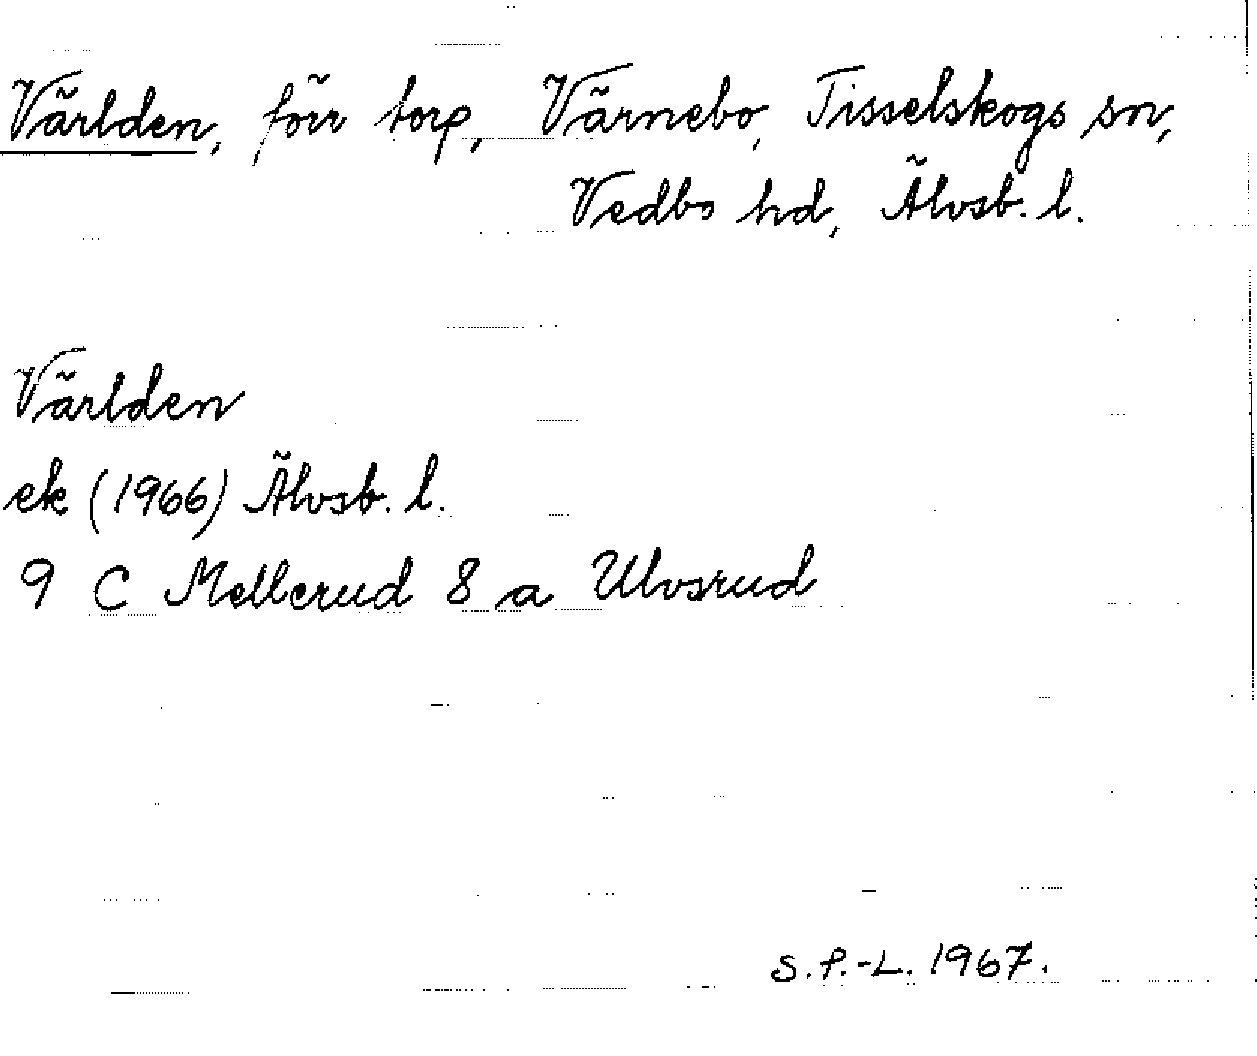 Världen, förr torp, Värnebo, Tisselskogs sn,
Vedbo hd, Älvsb. l.
Världen
ek (1966) Älvsb. l.
9 C Mellerud 8 a Ulvsrud
S.P.-L. 1967.